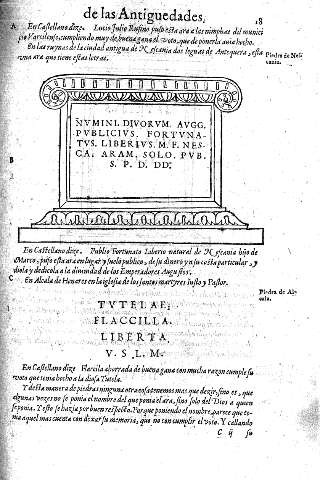 de las Antiguedades, 18
A En Castellano dize. Lucio Julio Rufino puso esta ara a las nimphas del munici
pio Varcilense, cumpliendo muy de buena gana el voto, que de ponerla auia hecho.
En las ruynas de la ciudad antigua de Nescania dos leguas de Antequera, esta
vna ara que tiene estas letras.
Piedra de Nes
cania.
NVMINI. DIVORVM. AVGG.
PVBLICIVS. FORTVNA-
TVS. LIBERIVS. M. F. NES-
CA. ARAM. SOLO. PVB.
S. P. D. DD.
B
En Castellano dize. Publio Fortunato Liberio natural de Nescania hijo de
Marco, puso esta ara en lugar y suelo publico, de su dinero y a su costa particular, y
diola y dedicola a la diuinidad de los Emperadores Augustos.
C En Alcala de Henares en la iglesia de los santos martyres Iusto y Pastor.
Piedra de Al-
cala.
TVTELAE.
FLACCILLA.
LIBERTA.
V. S. L. M.
En Castellano dize Flacila ahorrada de buena gana con mucha razon cumple su
voto que tenia hecho a la diosa Tutela.
Y desta manera de piedras ninguna otra cosa tenemos mas que dezir, sino es, que
algunas vezes no se ponia el nombre del que ponia el ara, sino solo del Dios a quien
se ponia. Y esto se hazia por buen respecto. Porque poniendo el nombre, parece que te-
nia aquel mas cuenta con dexar su memoria, que no con cumplir el voto. Y callando
C ij su